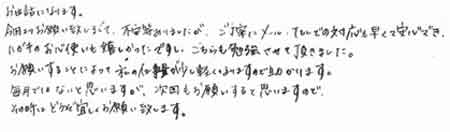 お世話になります。
今回よりお願い致しまして、不安等ありましたが、ご丁寧にメール、TELでの対応も早くて安心でき、
ハガキのお心使いも嬉しかったですし、こちらも勉強させて頂きました。
お願いすることによって私の仕事量が少し軽くなりますので助かります。
毎月ではないと思いますが、次回もお願いすると思いますので、
その時はどうぞ宜しくお願い致します。